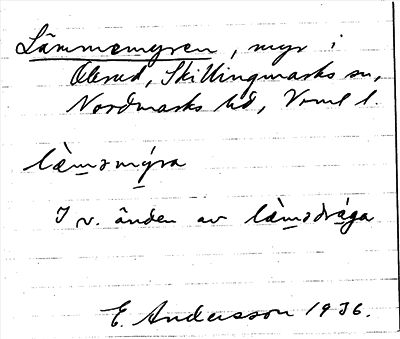 Lämmemyren, myr i
Olerud, Skillingmarks sn,
Nordmarks hd, Vrml l.
lä̀mₔmýra
I v. änden av lä̀mₔdrága
E. Andersson 1936.